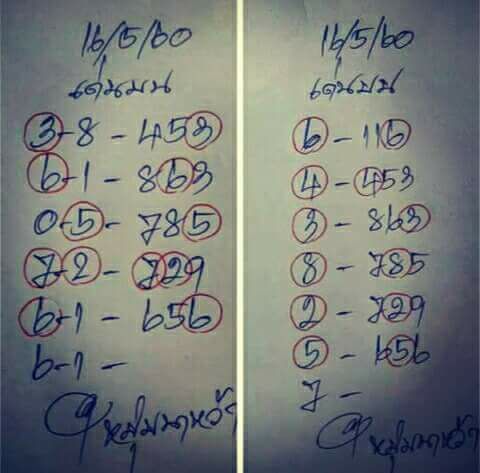 16/5/60
เด่นบน
3-8 - 453
6-1 - 863
0-5 - 785
7-2 - 729
6-1 - 656
6-1 -
16/5/60
เด่นบน
6 - 116
4 - 453
3 - 863
8 - 785
2 - 729
5 - 656
7 -